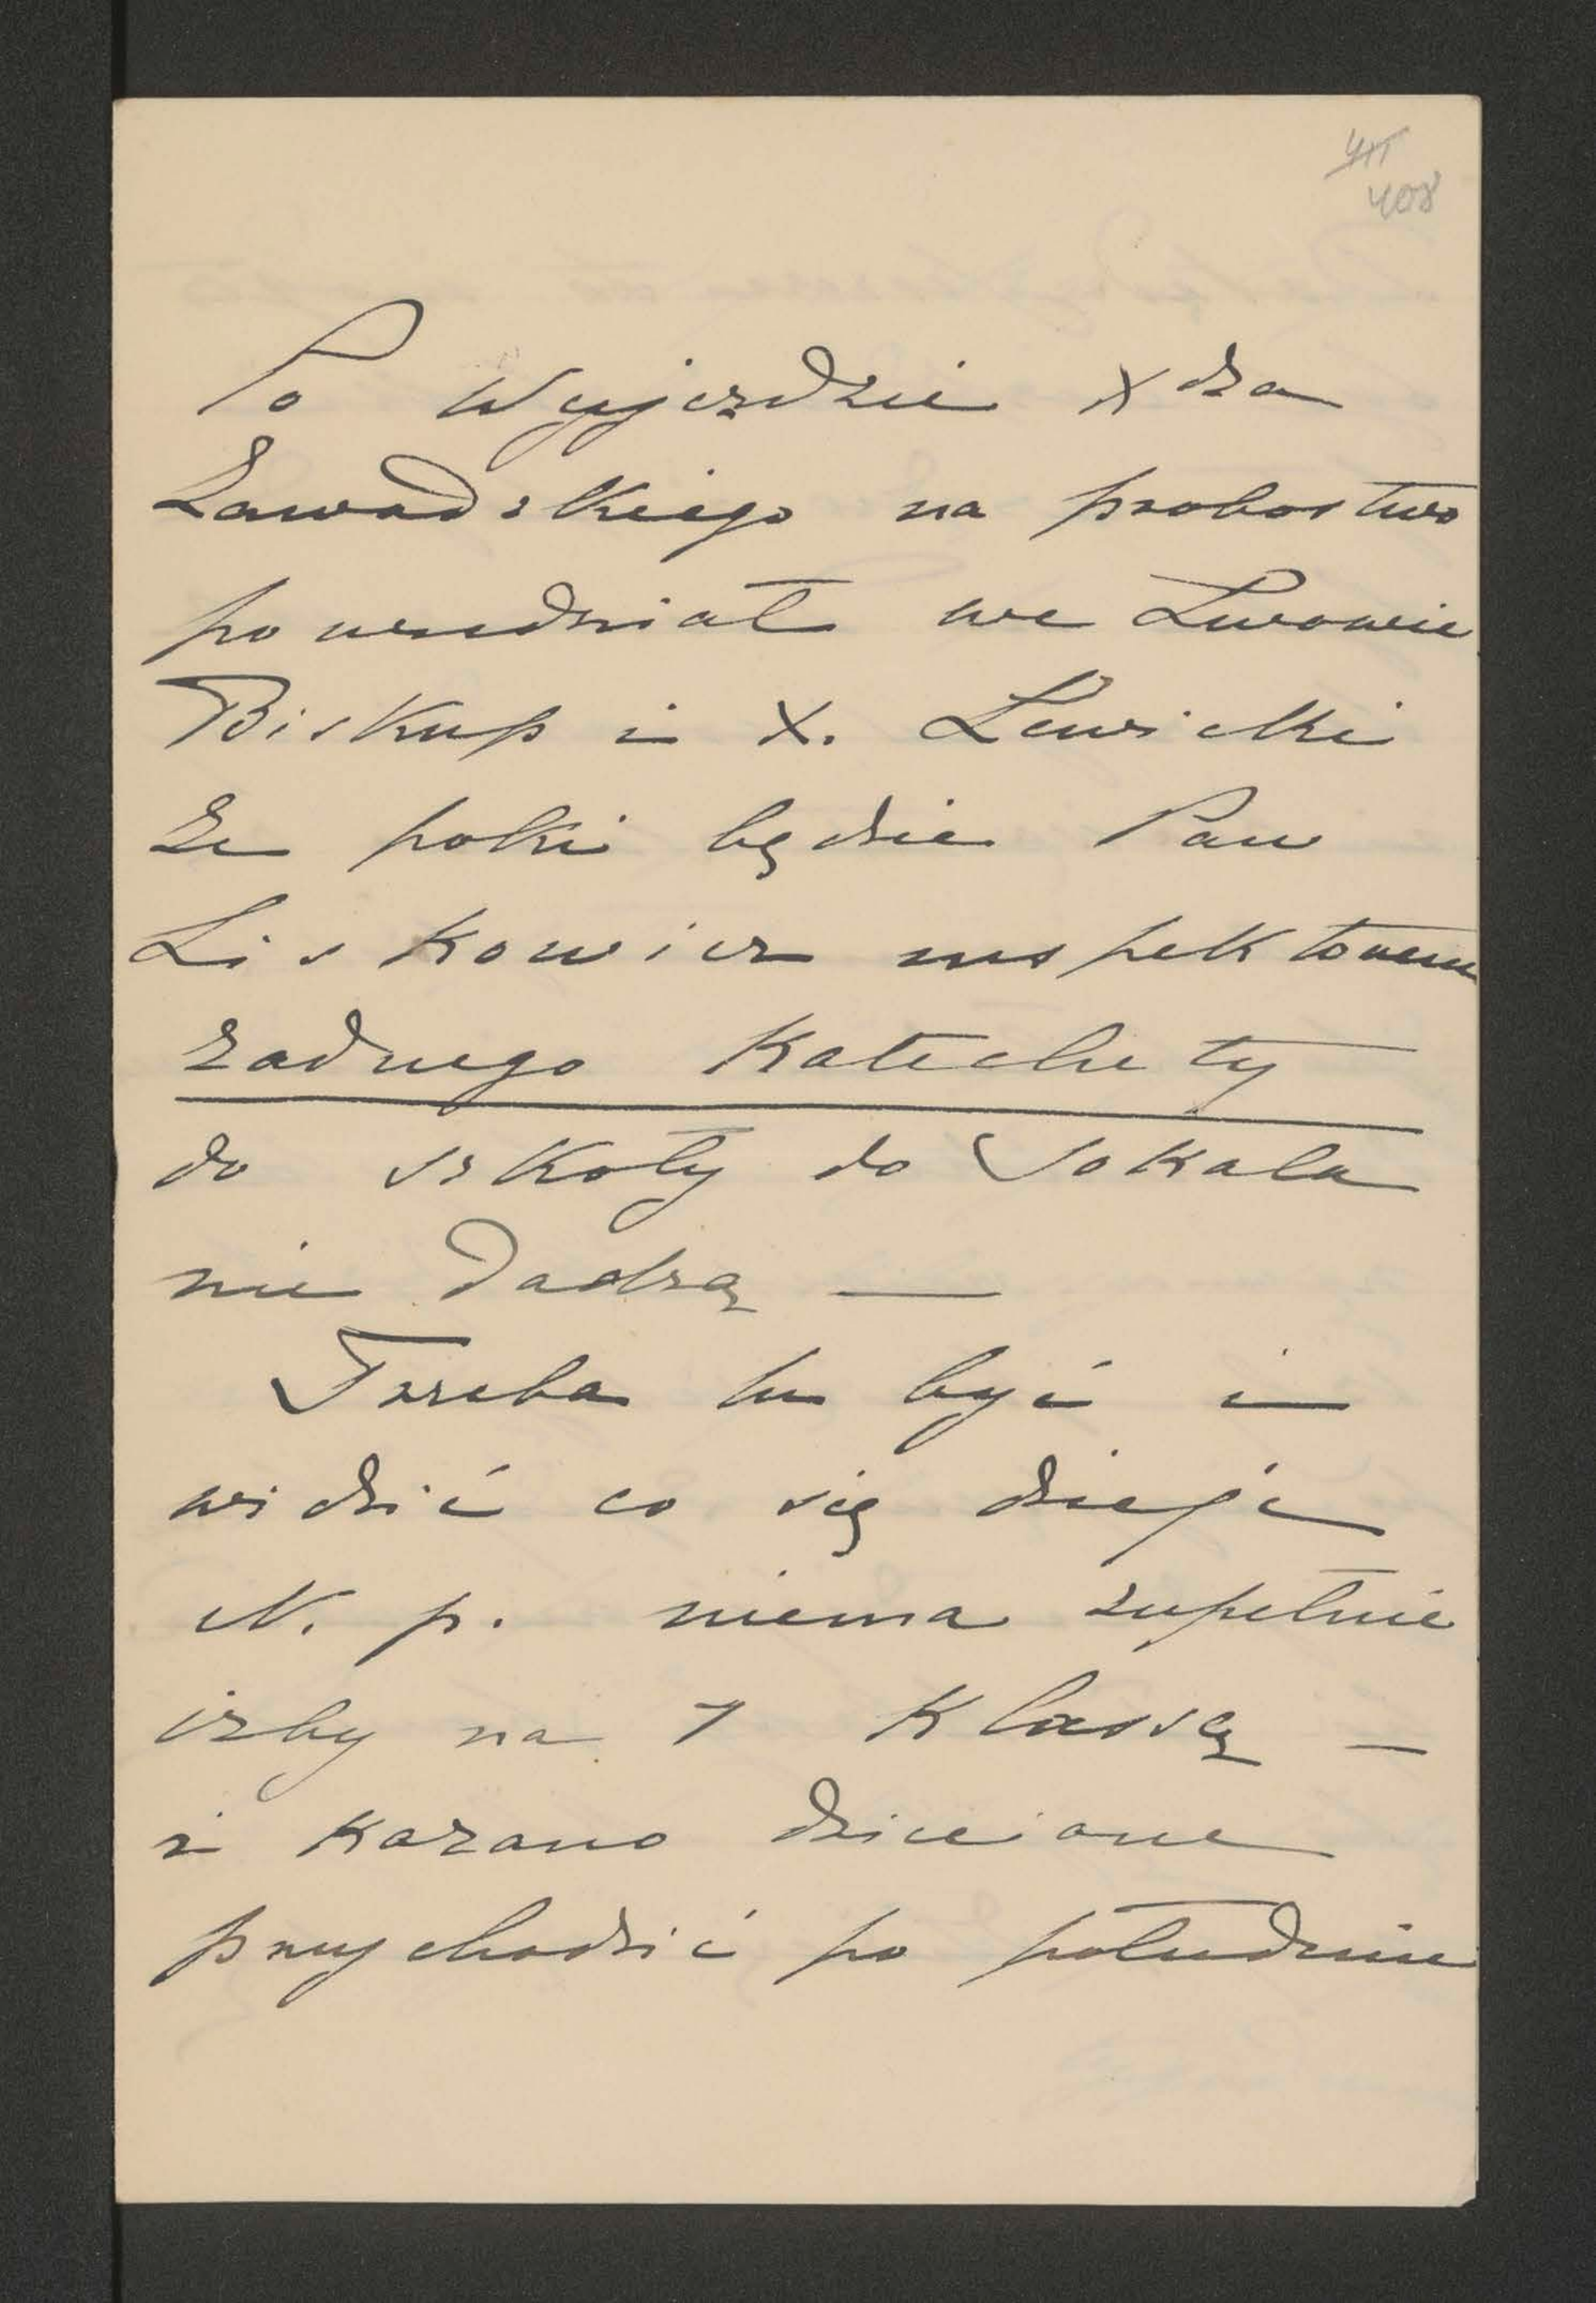 408
Po wyjezdzie Xdza
Zawadzkiego na probostwo
powiedział we Lwowie
Biskup i X. Lewicki
ze poki będzie Pan
Liskowicz inspektorem
zadnego Katechety
do szkoły do Sokala
nie dadzą —
Trzeba tu być i
widzić co się dzieje
N. p. niema zupełnie
izby na 7 Klassę —
i kazano dzieciom
przychodzić po południu